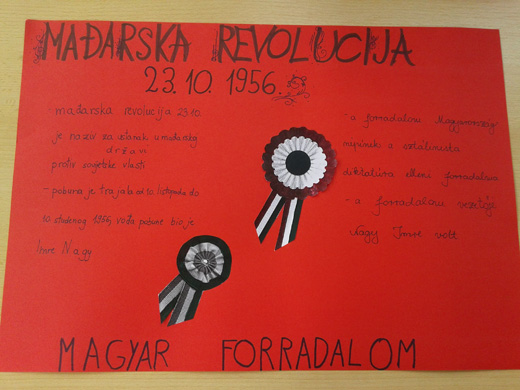 MAĐARSKA REVOLUCIJA
23.10.1956.
- mađarska revolucija 23.10.
je naziv za ustanak u mađarskoj
državi
protiv sovjetske vlasti
- pobuna je trajala od listopada do
10 studenog 1956, vođa pobune bio je
Imre Nagy
- a forradalom Magyarország
népének a sztálinista
diktatúra elleni forradalma
- a forradalom vezetője
Nagy Imre volt
MAGYAR FORRADALOM